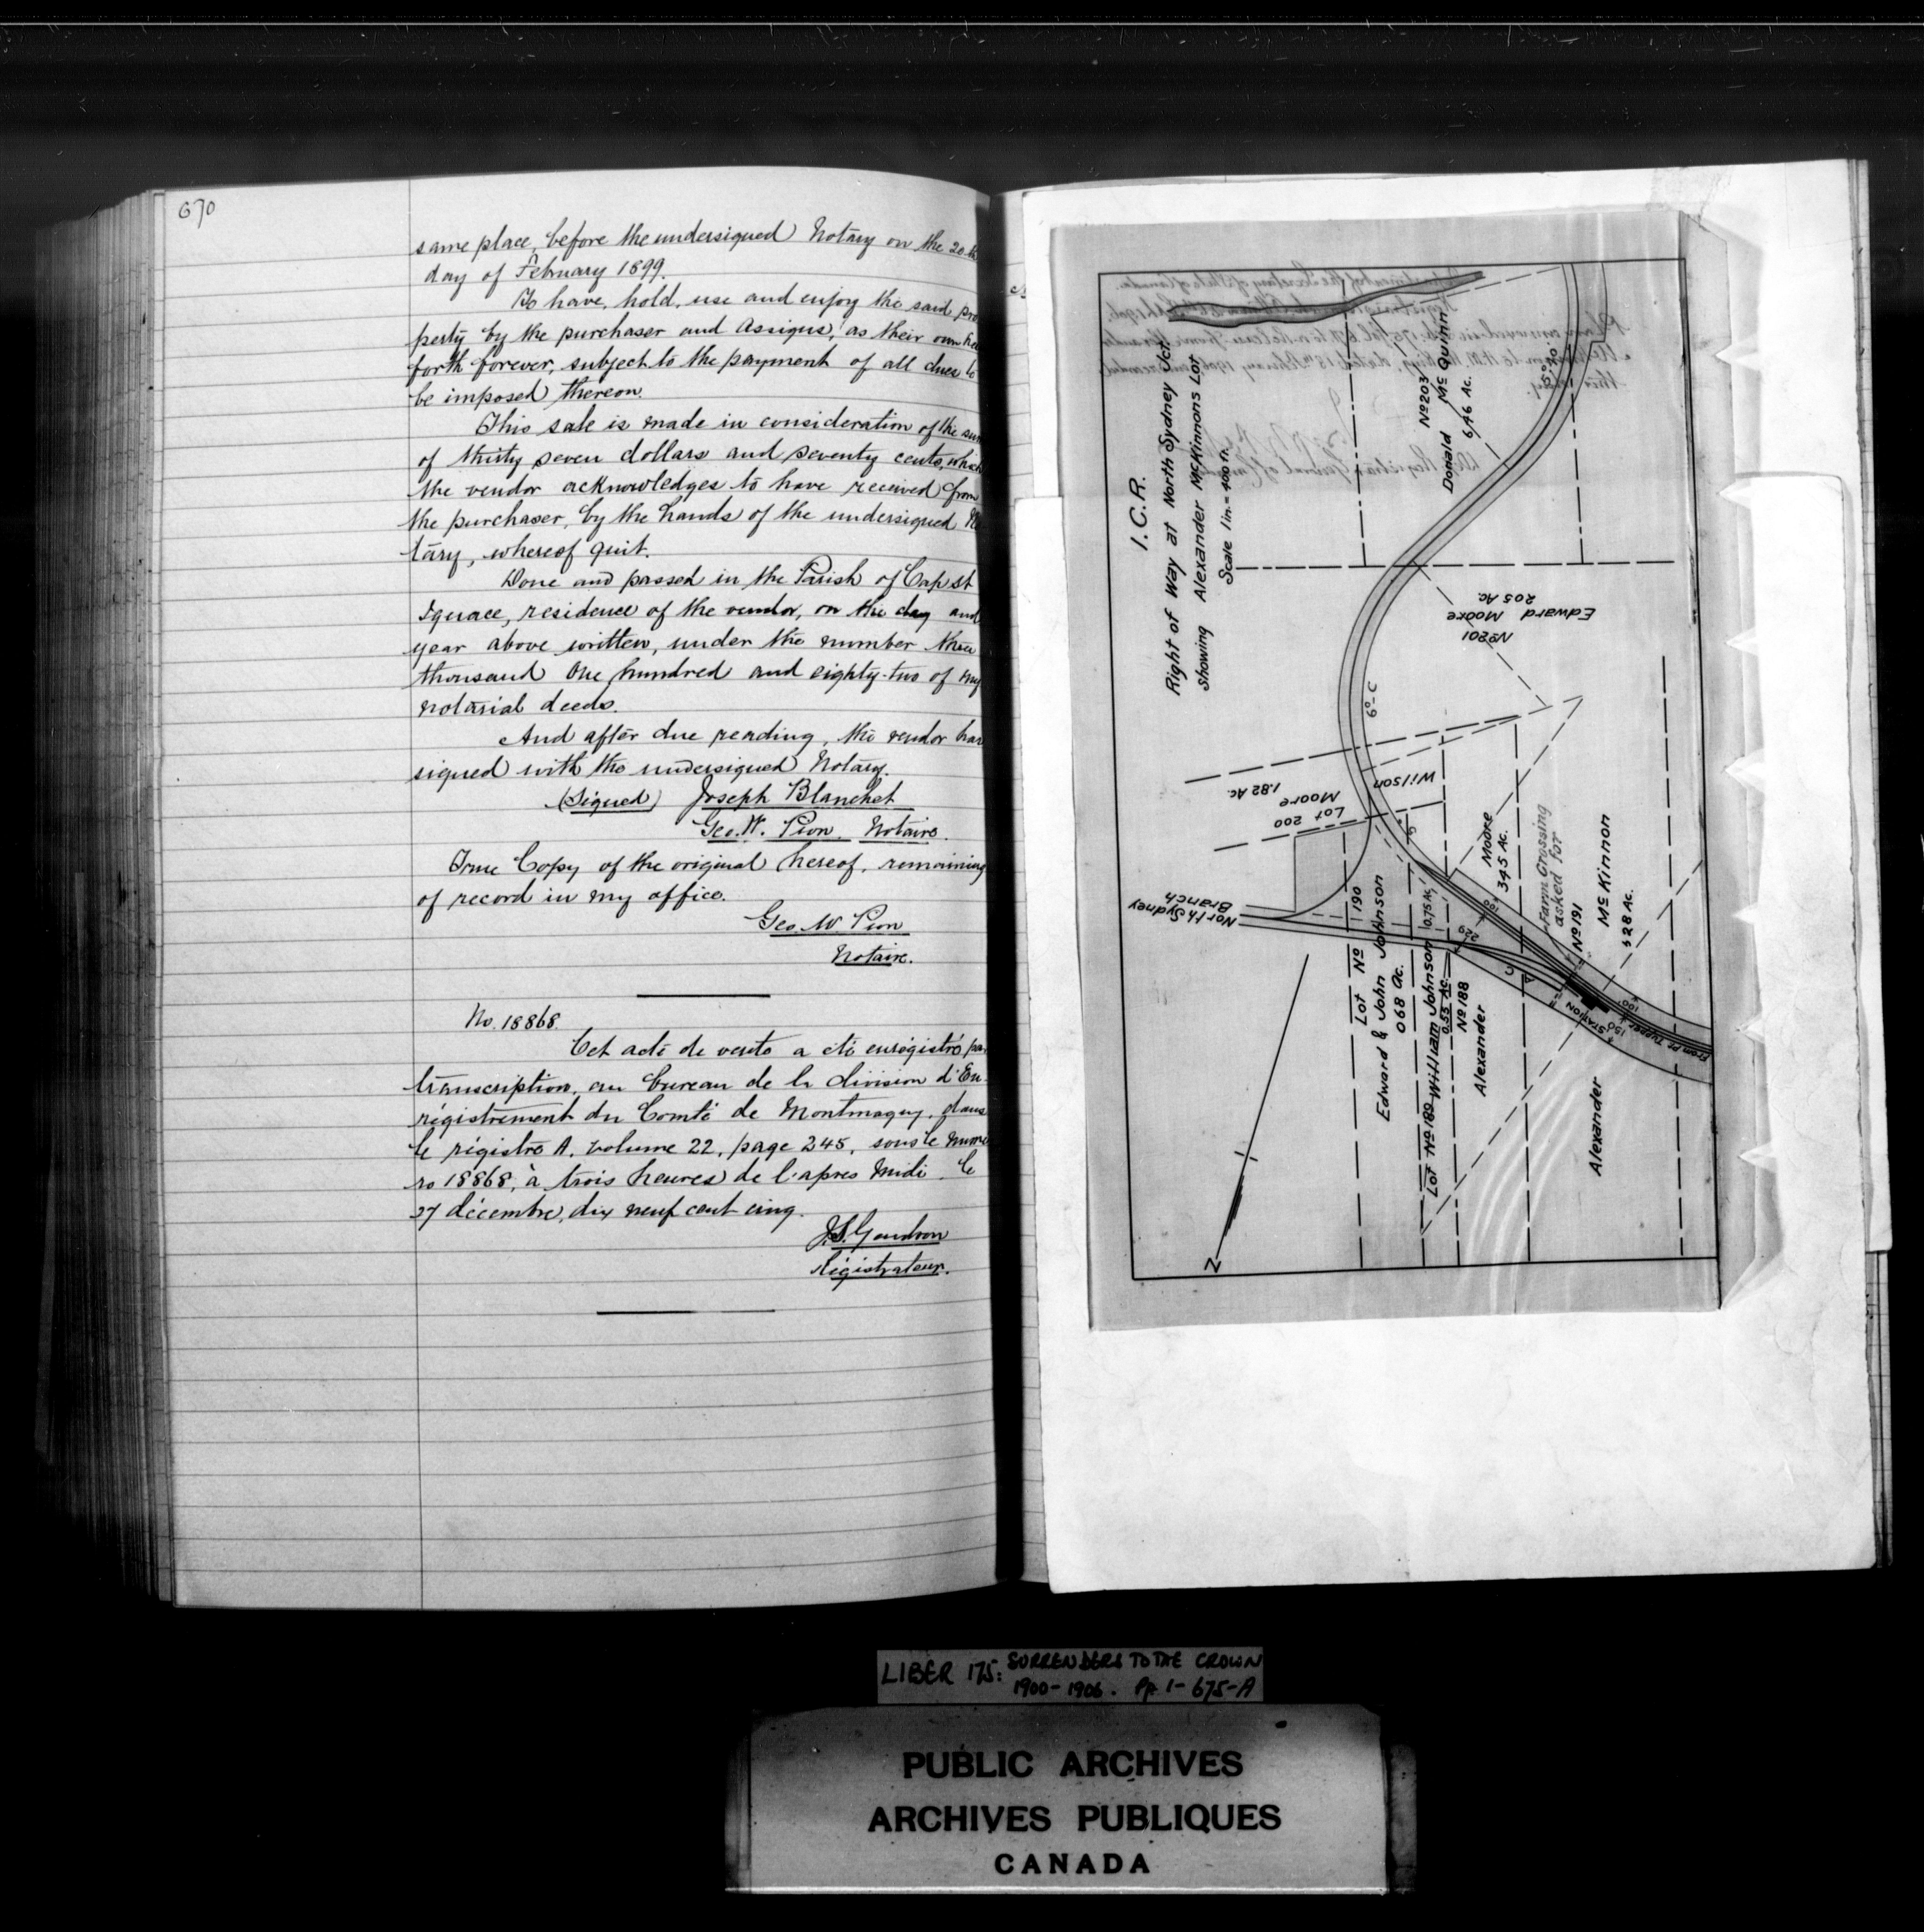 670
same place, before the undersigned Notary on the 20th
day of February 1899.
To have, hold, use and enjoy the said pro
perty by the purchaser and Assigns, as their own hen
forth forever, subject to the payment of all dues to
be imposed thereon.
This sale is made in consideration of the sum
of thirty seven dollars and seventy cents, which
the vendor acknowledges to have received from
the purchaser, by the hands of the undersigned No
tary, whereof quit.
Done and passed in the Parish of Cap St
Ignace, residence of the vendor, on the day and
year above written, under the number three
thousand One hundred and eighty-two of my
notarial deeds.
And after due reading, the vendor has
signed with the undersigned Notary.
(Signed) Joseph Blanchet
Geo. W. Pion. Notaire.
True Copy of the original hereof, remaining
of record in my office.
Geo. W Pion
Notaire.
No. 18868.
Cet acte de vente a été enrégistré par
transcription, au bureau de la division d'En-
régistrement du Comté de Montmagny, dans
le régistre A, volume 22, page 245, sous le numé
ro 18868, à trois heures de l'apres Midi, le
27 décembre, dix neuf cent cinq.
Régistrateur.
I.C.R.
Right of Way at North Sydney Jct.
Showing Alexander McKinnons Lot
Scale 1in.=400 ft.
Nº203
Donald McQuinn
6.46 Ac.
Nº201
Edward Moore
2.05 Ac.
6°-C
Willson
Lot 200
Moore
1.82 Ac.
North Sydney
Branch
Lot Nº 190
Edward & John Johnson
0.68 Ac.
Lot Nº189 William Johnson 0.75 Ac.
0.55 Ac.
Nº188
Alexander
Moore
3.45 Ac.
229
100
"Farm Crossing
asked for"
Nº191
Alexander McKinnon
5.28 Ac.
STATION
150
100
From Pt Tupper
N
LIBER 175: SURRENDERS TO THE CROWN
1900-1906. Pp. 1-675-A
PUBLIC ARCHIVES
ARCHIVES PUBLIQUES
CANADA